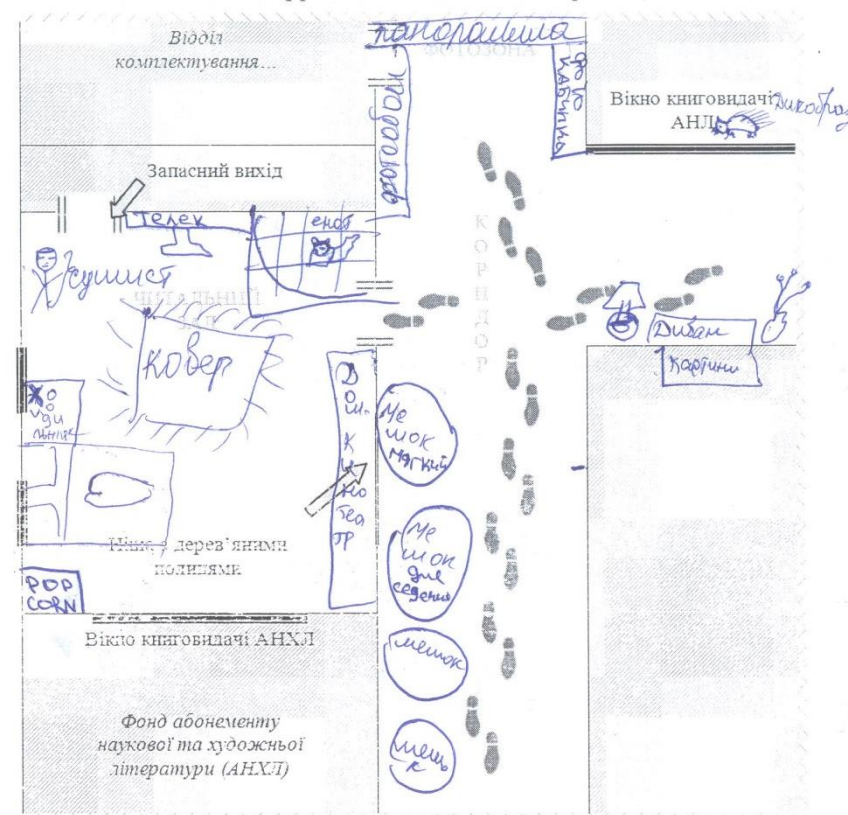 Відділ
комплектування...
панорамма
ФОТОЗОНА
фото
кабинка
фотообои
Вікно книговидачі
АНЛ
Дикобраз
Запасний вихід
телек
енот
сушист
ЧИТАЛЬНИЙ
ЗАЛ
КОРИДОР
ковер
Диван
Картини
Холодильник
Дом. Кинотеатр
Ме
шок
мягкий
Ме
шок
для
седения
Ніша з дерев’яними
полицями
POP
CORN
Вікно книговидачі АНХЛ
мешок
Фонд абонементу
наукової та художньої
літератури (АНХЛ)
мешо
к